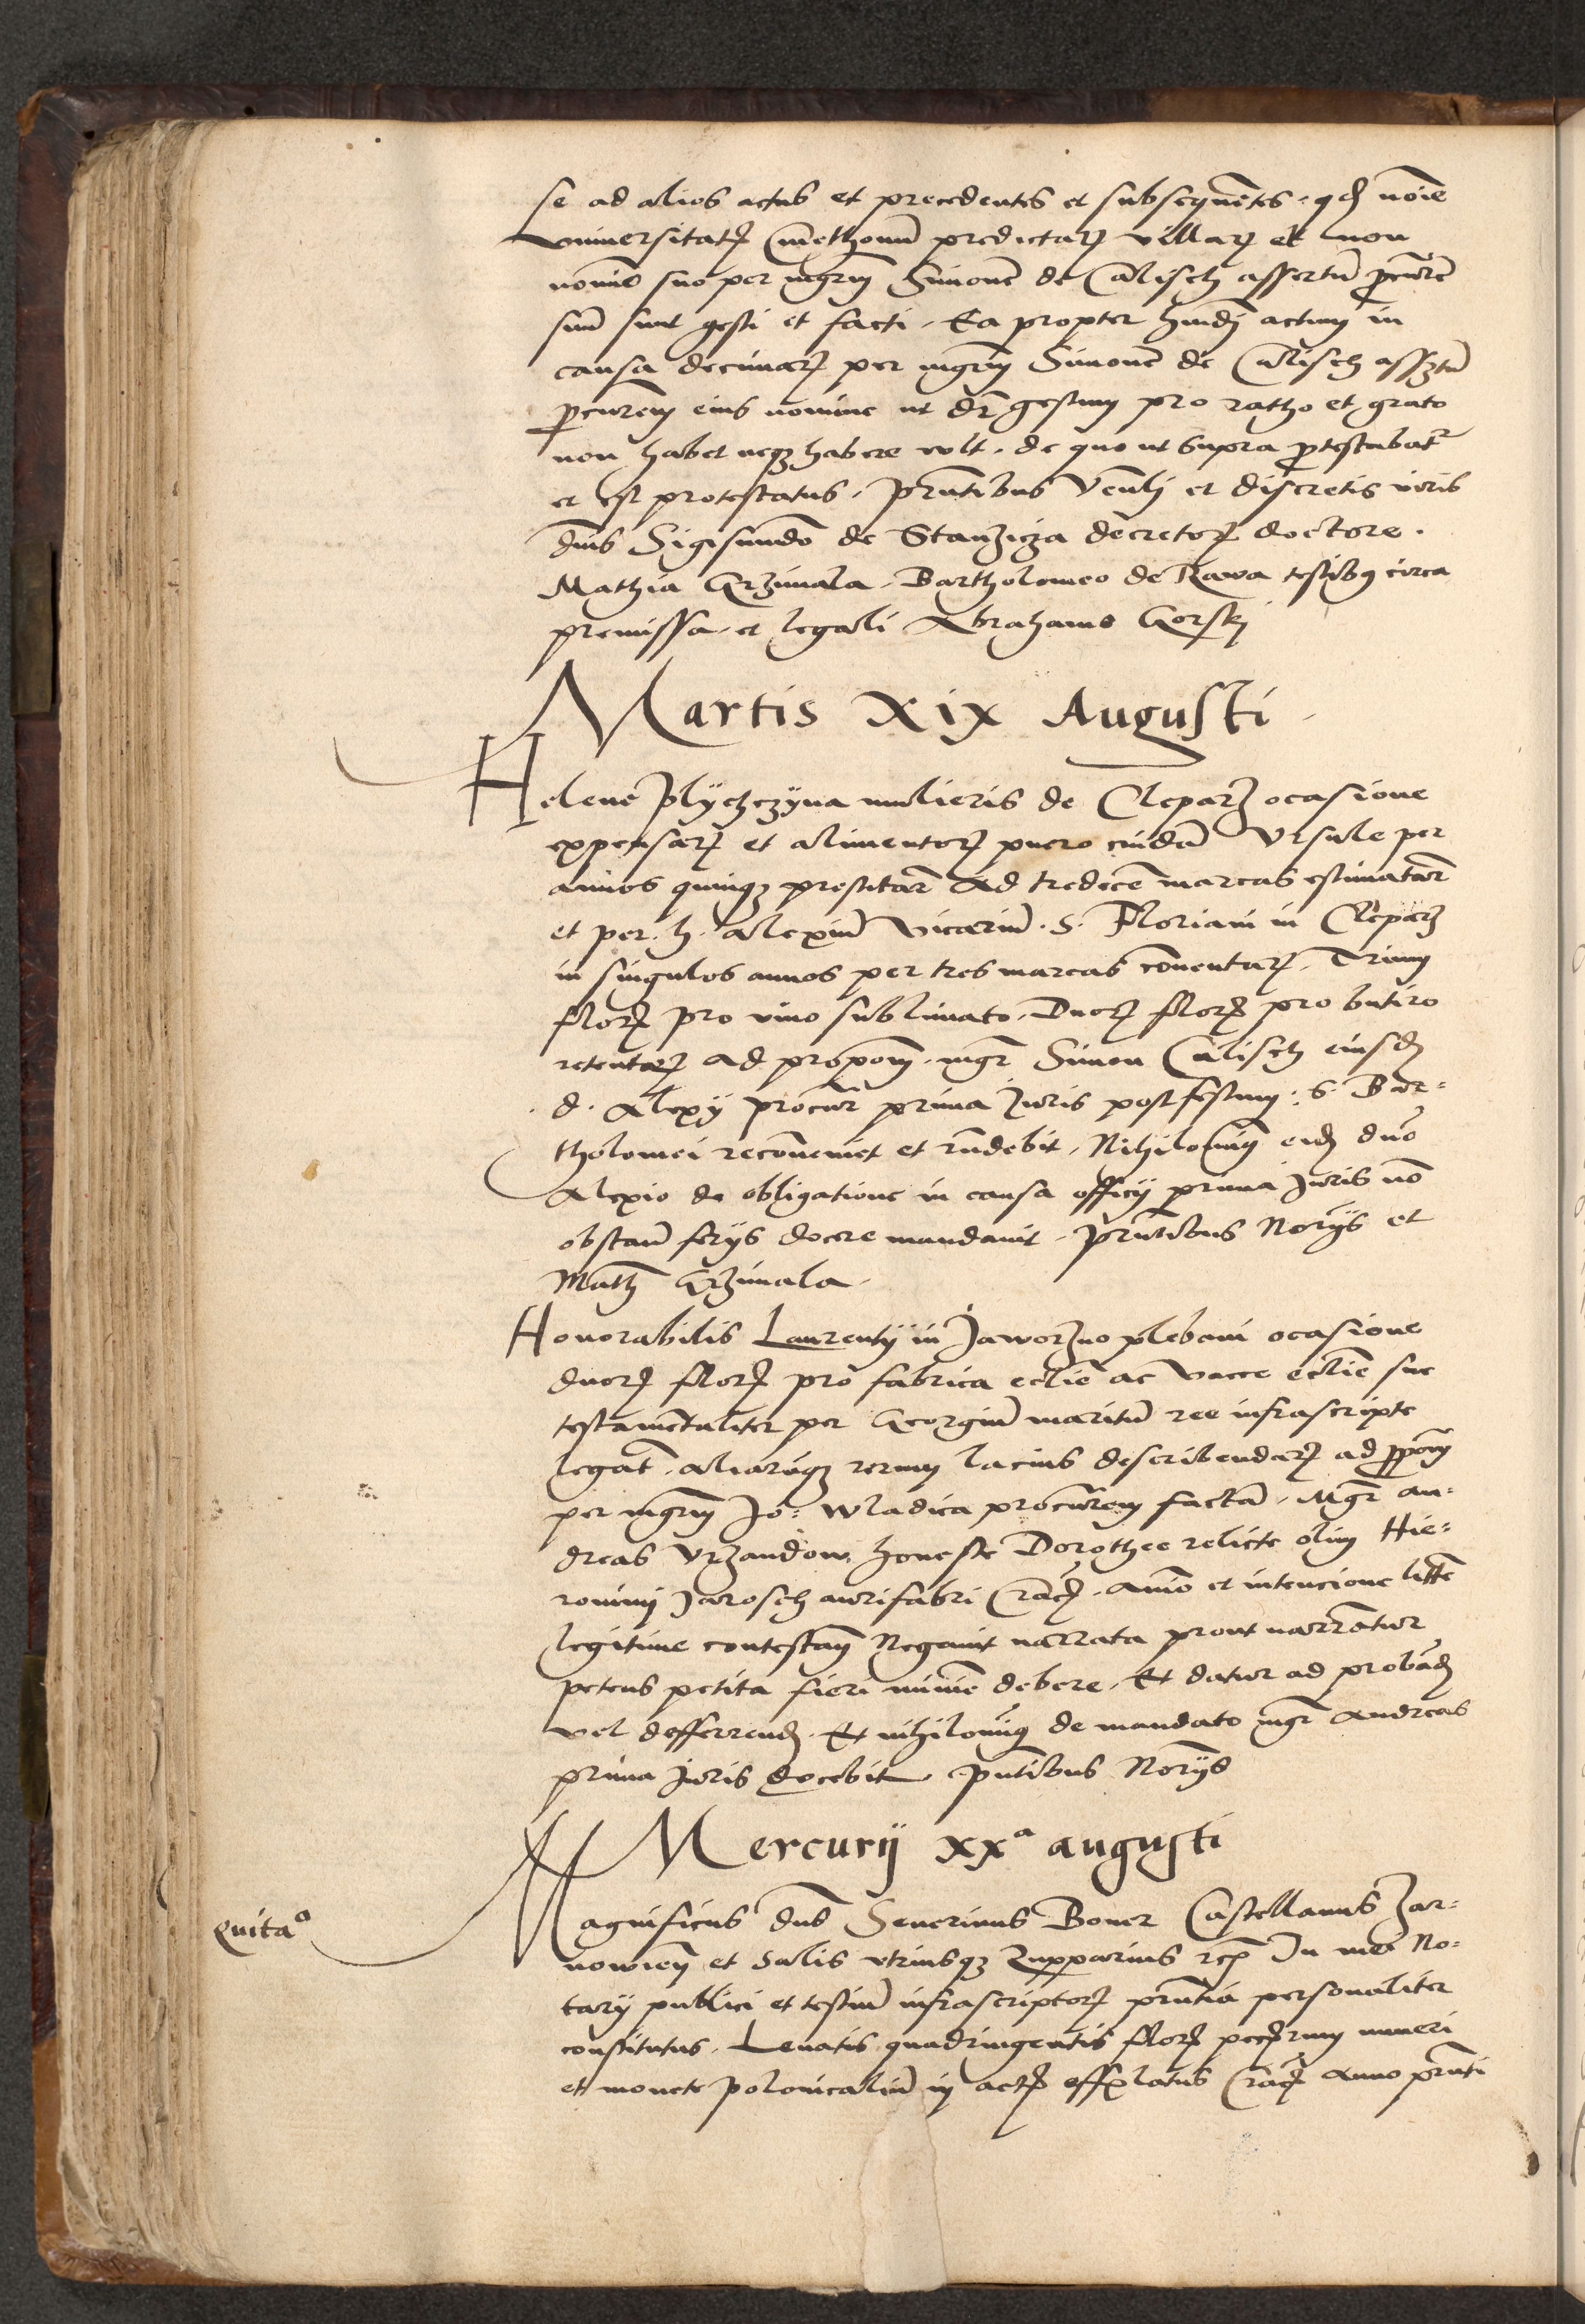 se ad alios actus et precedentes et subsequētes, qđ noīe
vniversitatꝭ Cmethonū predictaꝝ villaꝝ et non
nomīe suo per mgrm̄ Simonē de Calisch assertū ꝓcurē
suū sunt gesti et facti. Ea propter hmōi actum in
causa decimaꝝ per mgrm̄ Simonē de Calisch assertū
ꝓcurem̄ eius nomine ut dr̄ gestum pro ratho et grato
non habet neqꝫ habere vult. de quo ut supra ꝓtestabatr̄
et est protestatus. Pn̄tibus Ven̄li et discretis viris
dn̄is Sigismundo de Stanzicza decretoꝝ doctore.
Mathia Grzimala. Bartholomeo de Rawa testibꝯ circa
premissa. et legali Abrahamo Gorski
Martis xix Augusti
Helene Plychczyna mulieris de Cleparz ocasione
expensaꝝ et alimentoꝝ puero cuidā Vrsule per
annos quinqꝫ prestitaꝝ Ad tredecē marcas estimataꝝ
et per. h. Alexiū vicariū. S. Floriani in Cleparz
in singulos annos per tres marcas conventaꝝ. Trium
floꝝ pro vino sublimato. Duoꝝ floꝝ pro butiro
retentoꝝ ad propom̄. mgr̄ Simon Calisch eiusdē
d. Alexij procur̄ prima Juris post festum: S. Bar-
tholomei reconveniet et rn̄debit. Nihilominꝯ eidē dn̄o
Alexio de obligatione in causa officij prima Juris nō
obstan̄ ferijs docere mandavit. Pn̄tibus Norijs et
Math Grzimala.
Honorabilis Laurentij in Jaworzno plebani ocasione
duoꝝ floꝝ pro fabrica ecclīe ac vacce ecclīe sue
testamentaliter per Georgiū maritū ree infrascripte
legat̄. aliarūqꝫ rerum lacius describendaꝝ ad ꝓpom̄
per mgrm̄ Jo: Wladica procurem̄ factā. Mgr̄ An-
dreas Vrzandow honeste Dorothee relicte olim Hie-
ronimi Jarosch aurifabri Cracꝭ. Animo et intencione litē
legitime contestan̄ Negavit narrata prout narrātur
petens petita fieri minime debere. Et datur ad proband̄
vel defferrend̄. Et nihilominꝯ de mandato mgr̄ Andreas
prima Juris docebit Pn̄tibus Norijs
Mercurij xxª augusti
Quitaᵒ
Magnificus dn̄s Severinus Boner Castellanus Zar-
nowien̄ et Salis vtriusqꝫ Zupparius rcꝭ In mei No-
tarij publici et testiū infrascriptoꝝ pn̄tia personaliter
constitutus. Levatis quadringentis floꝝ pecꝭrum numeri
et monete polonicaliū in actꝭ Cracꝭ Anno pn̄ti